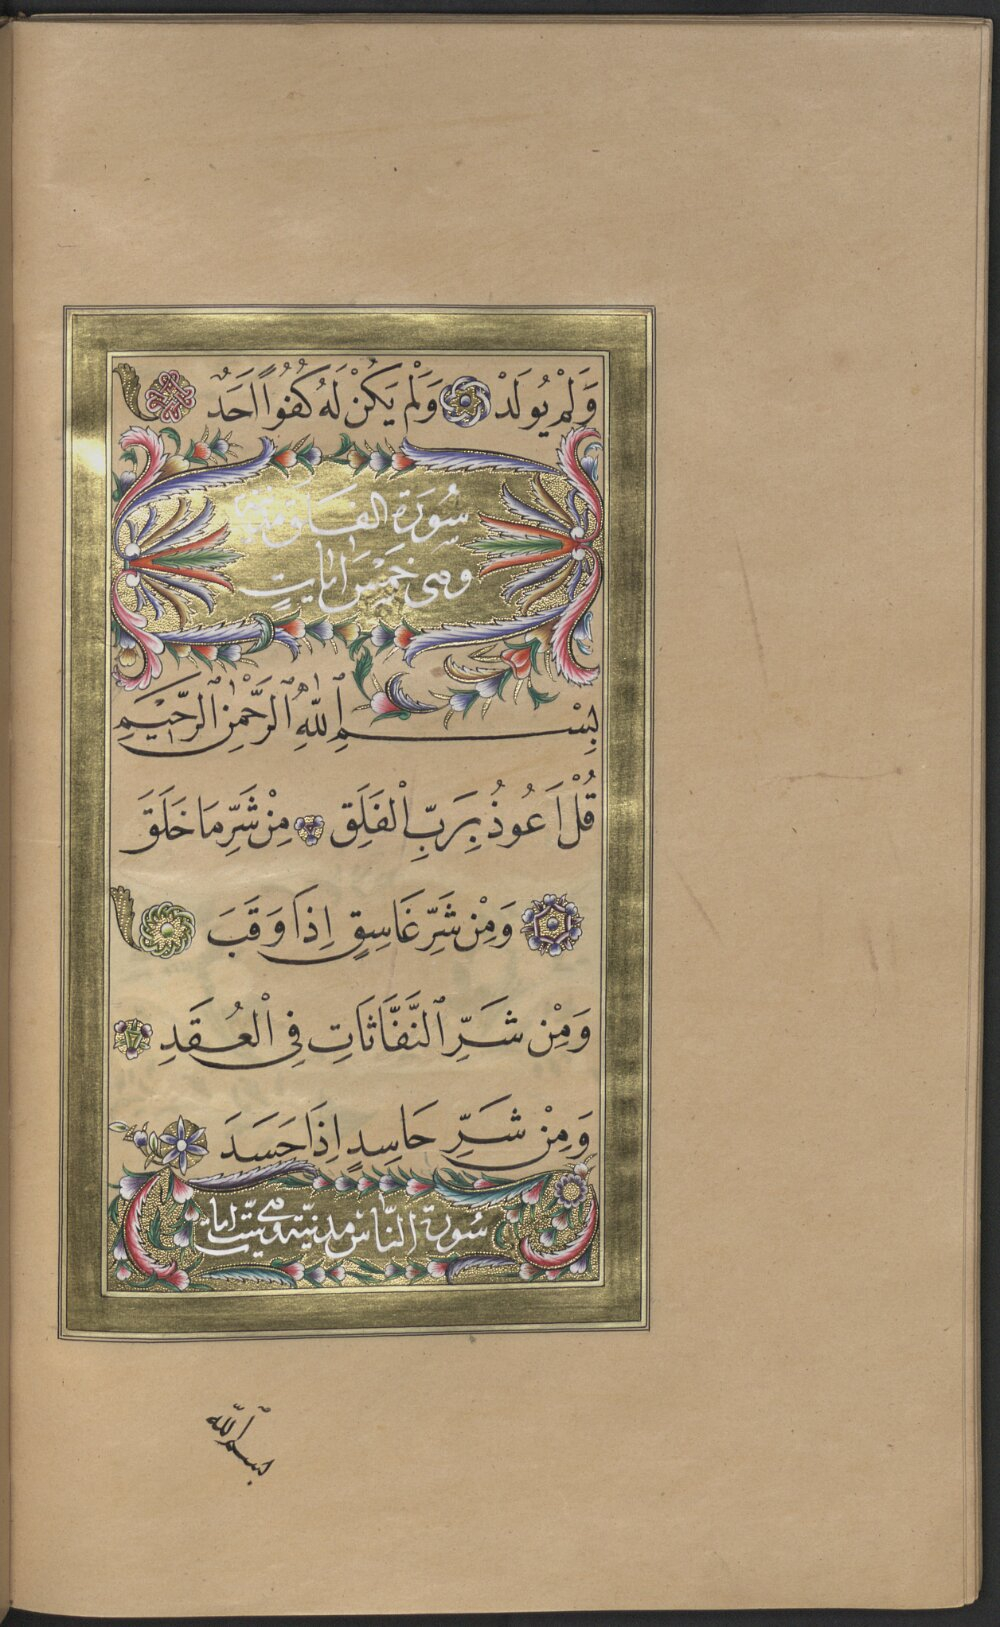 وَلَمْ يُولَدْ وَلَمْ يَكُنْ لَهُ كُفُوًا اَحَدٌ
سُورَةُ الفلق مدنية
وهى خَمْسُ اٰيَاتٍ
بِسْمِ ٱللّٰهِ ٱلرَّحْمٰنِ ٱلرَّحٖيمِ
قُلْ اَعُوذُ بِرَبِّ الْفَلَقِ مِنْ شَرِّ مَا خَلَقَ
وَمِنْ شَرِّ غَاسِقٍ اِذَا وَقَبَ
وَمِنْ شَرِّ ٱلنَّفَّاثَاتِ فِى الْعُقَدِ
وَمِنْ شَرِّ حَاسِدٍ اِذَا حَسَدَ
سُورة النَّاس مدنيّة وهى ستّ اٰيات
بسم اللّه